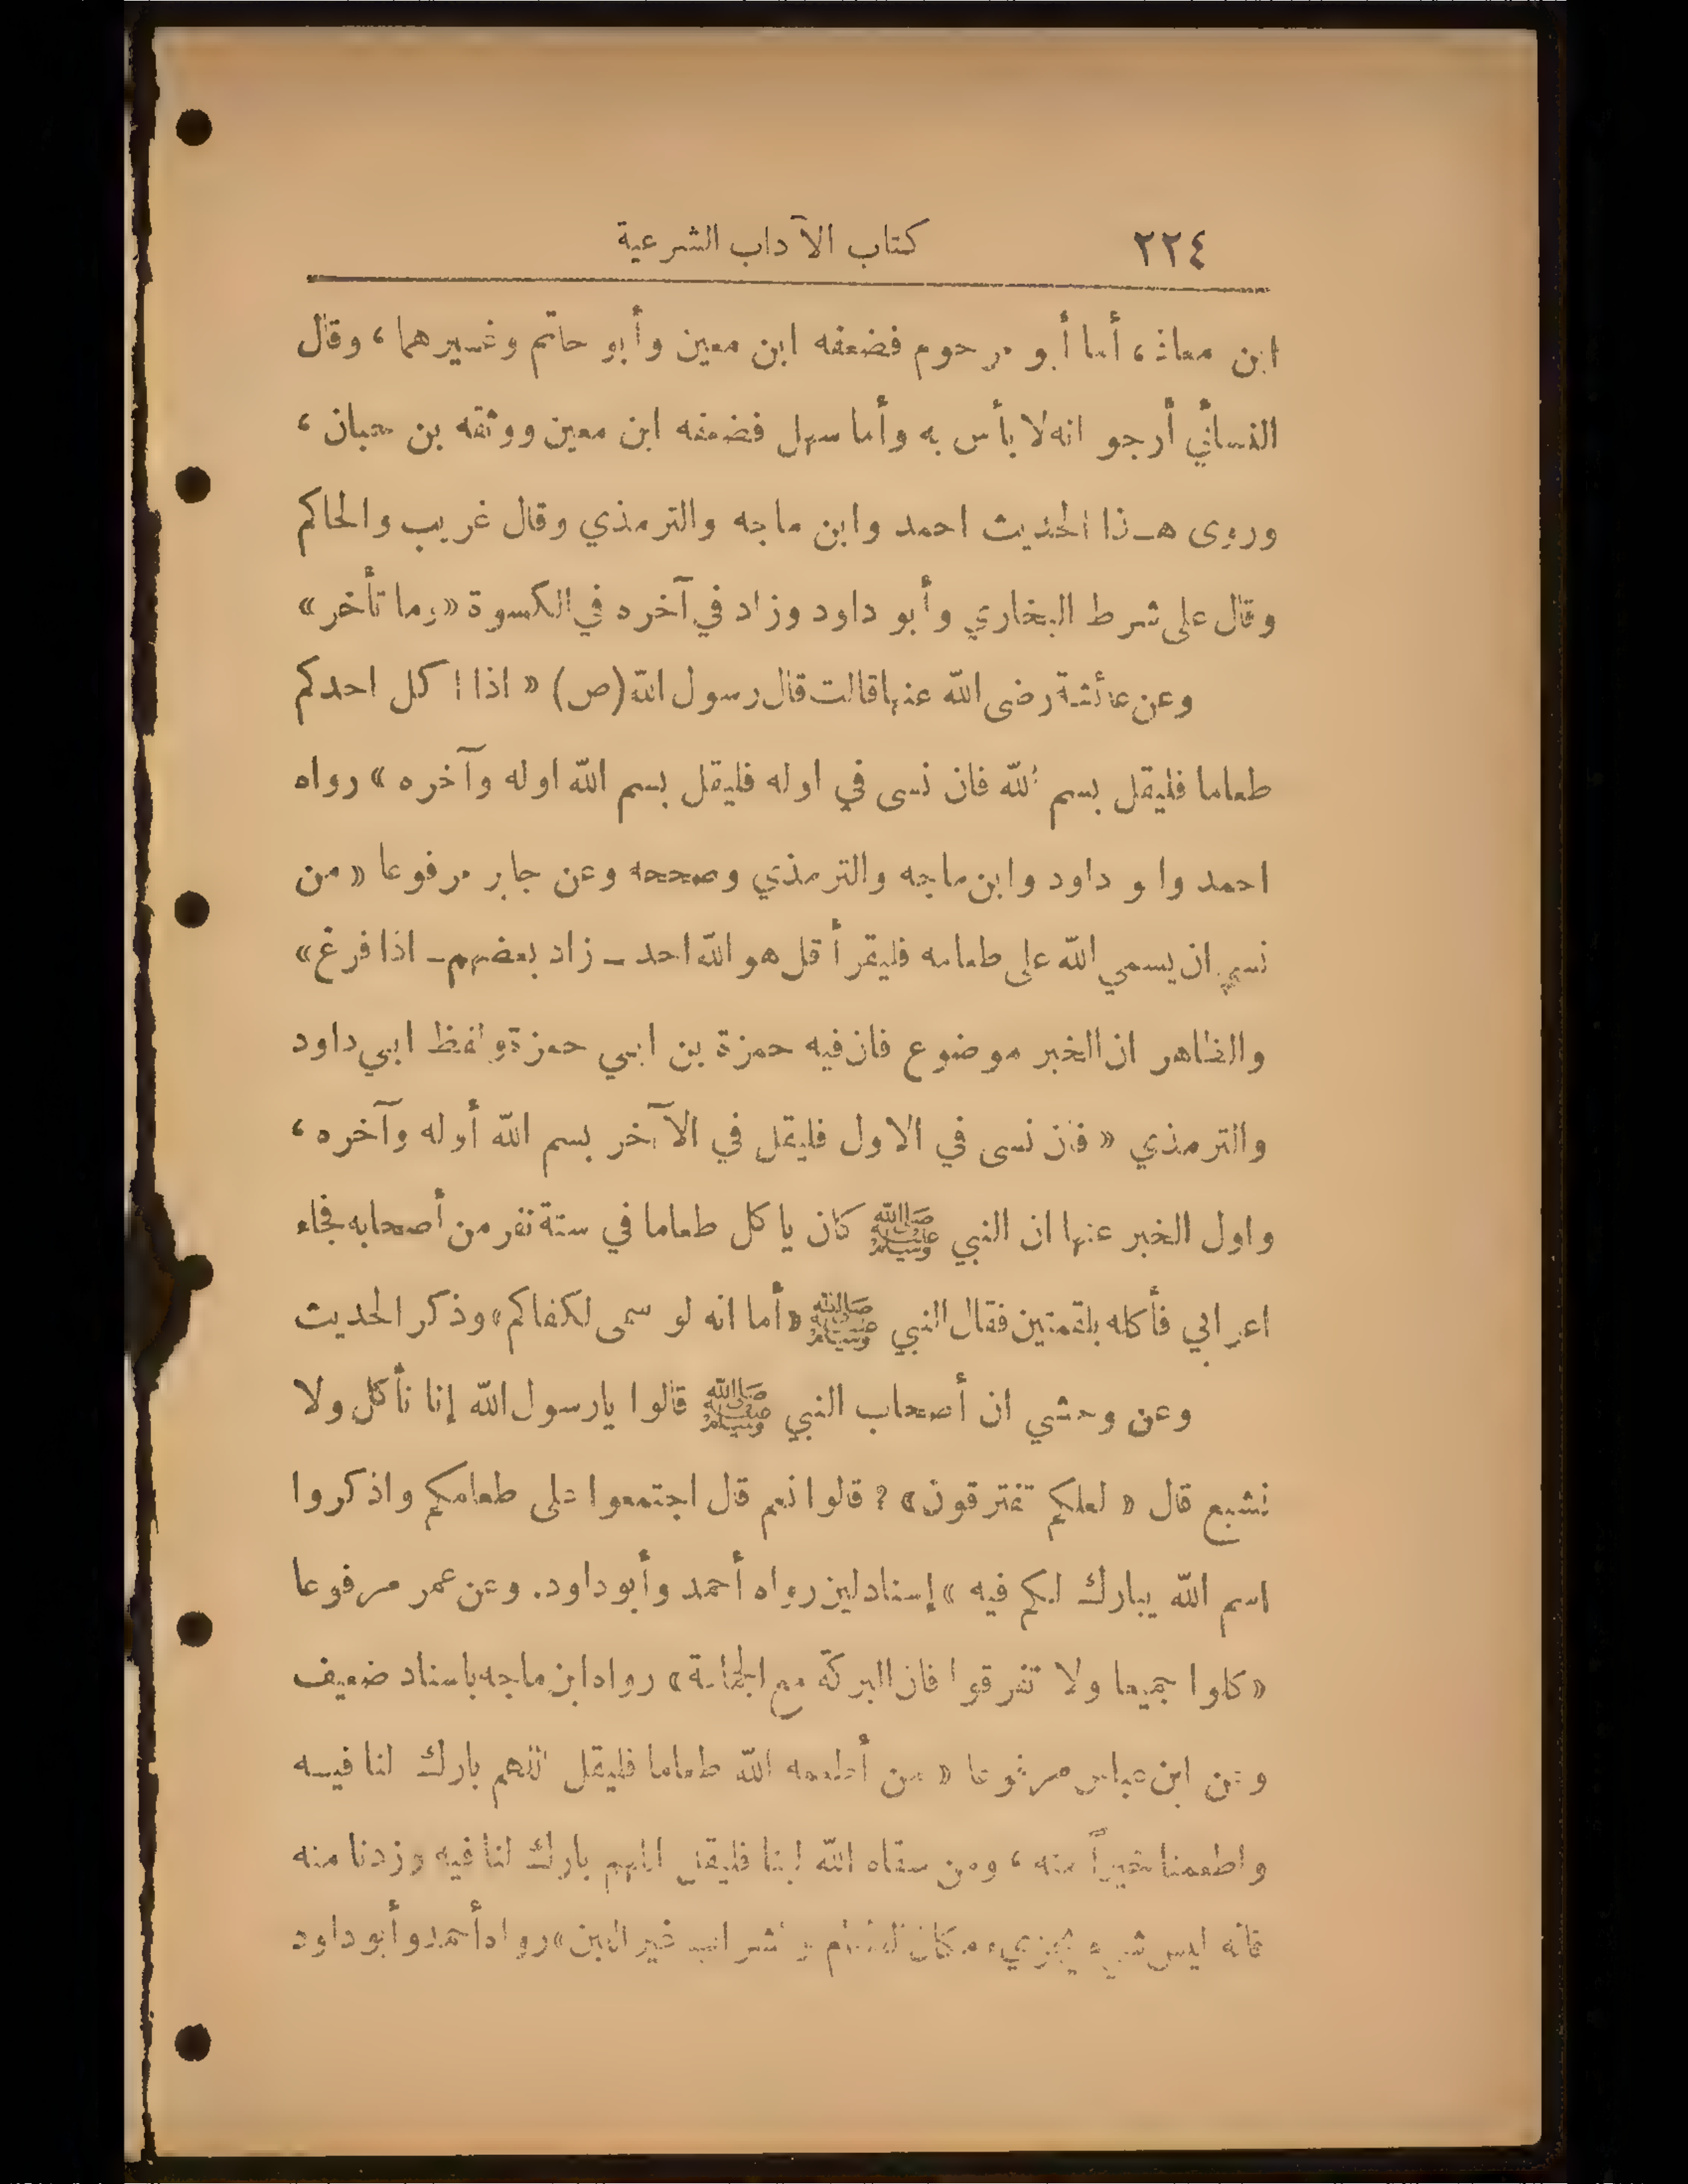 ٢٢٤ كتاب الآداب الشرعية
ابن معاذ، أما أبو مرحوم فضعفه ابن معين وأبو حاتم وغيرهما، وقال
النسائي أرجو انه لا بأس به وأما سهل فضعفه ابن معين ووثقه بن حبان،
وروى هذا الحديث احمد وابن ماجه والترمذي وقال غريب والحاكم
وقال على شرط البخاري وأبو داود وزاد في آخره في الكسوة «وما تأخر»
وعن عائشة رضى الله عنها قالت قال رسول الله (ص) «اذا اكل احدكم
طعاما فليقل بسم الله فان نسى في اوله فليقل بسم الله اوله وآخره» رواه
احمد وابو داود وابن ماجه والترمذي وصححه وعن جابر مرفوعا «من
نسي ان يسمي الله على طعامه فليقرأ قل هو الله احد – زاد بعضهم – اذا فرغ»
والظاهر ان الخبر موضوع فان فيه حمزة بن ابي حمزة ولفظ ابي داود
والترمذي «فان نسى في الاول فليقل في الآخر بسم الله أوله وآخره،
واول الخبر عنها ان النبي ﷺ كان ياكل طعاما في ستة نفر من أصحابه فجاء
اعرابي فأكله بلقمتين فقال النبي ﷺ «أما انه لو سمى لكفاكم» وذكر الحديث
وعن وحشي ان أصحاب النبي ﷺ قالوا يارسول الله إنا نأكل ولا
نشبع قال «لعلكم تفترقون»؟ قالوا نعم قال اجتمعوا على طعامكم واذكروا
اسم الله يبارك لكم فيه» إسناد لين رواه أحمد وأبو داود. وعن عمر مرفوعا
«كلوا جميعا ولا تفرقوا فان البركة مع الجماعة» رواه ابن ماجه باسناد ضعيف
وعن ابن عباس مرفوعا «من أطعمه الله طعاما فليقل اللهم بارك لنا فيه
واطعمنا خيراً منه، ومن سقاه الله لبنا فليقل اللهم بارك لنا فيه وزدنا منه
فانه ليس شيء يجزيء مكان الطعام والشراب غير اللبن» رواه أحمد وأبو داود